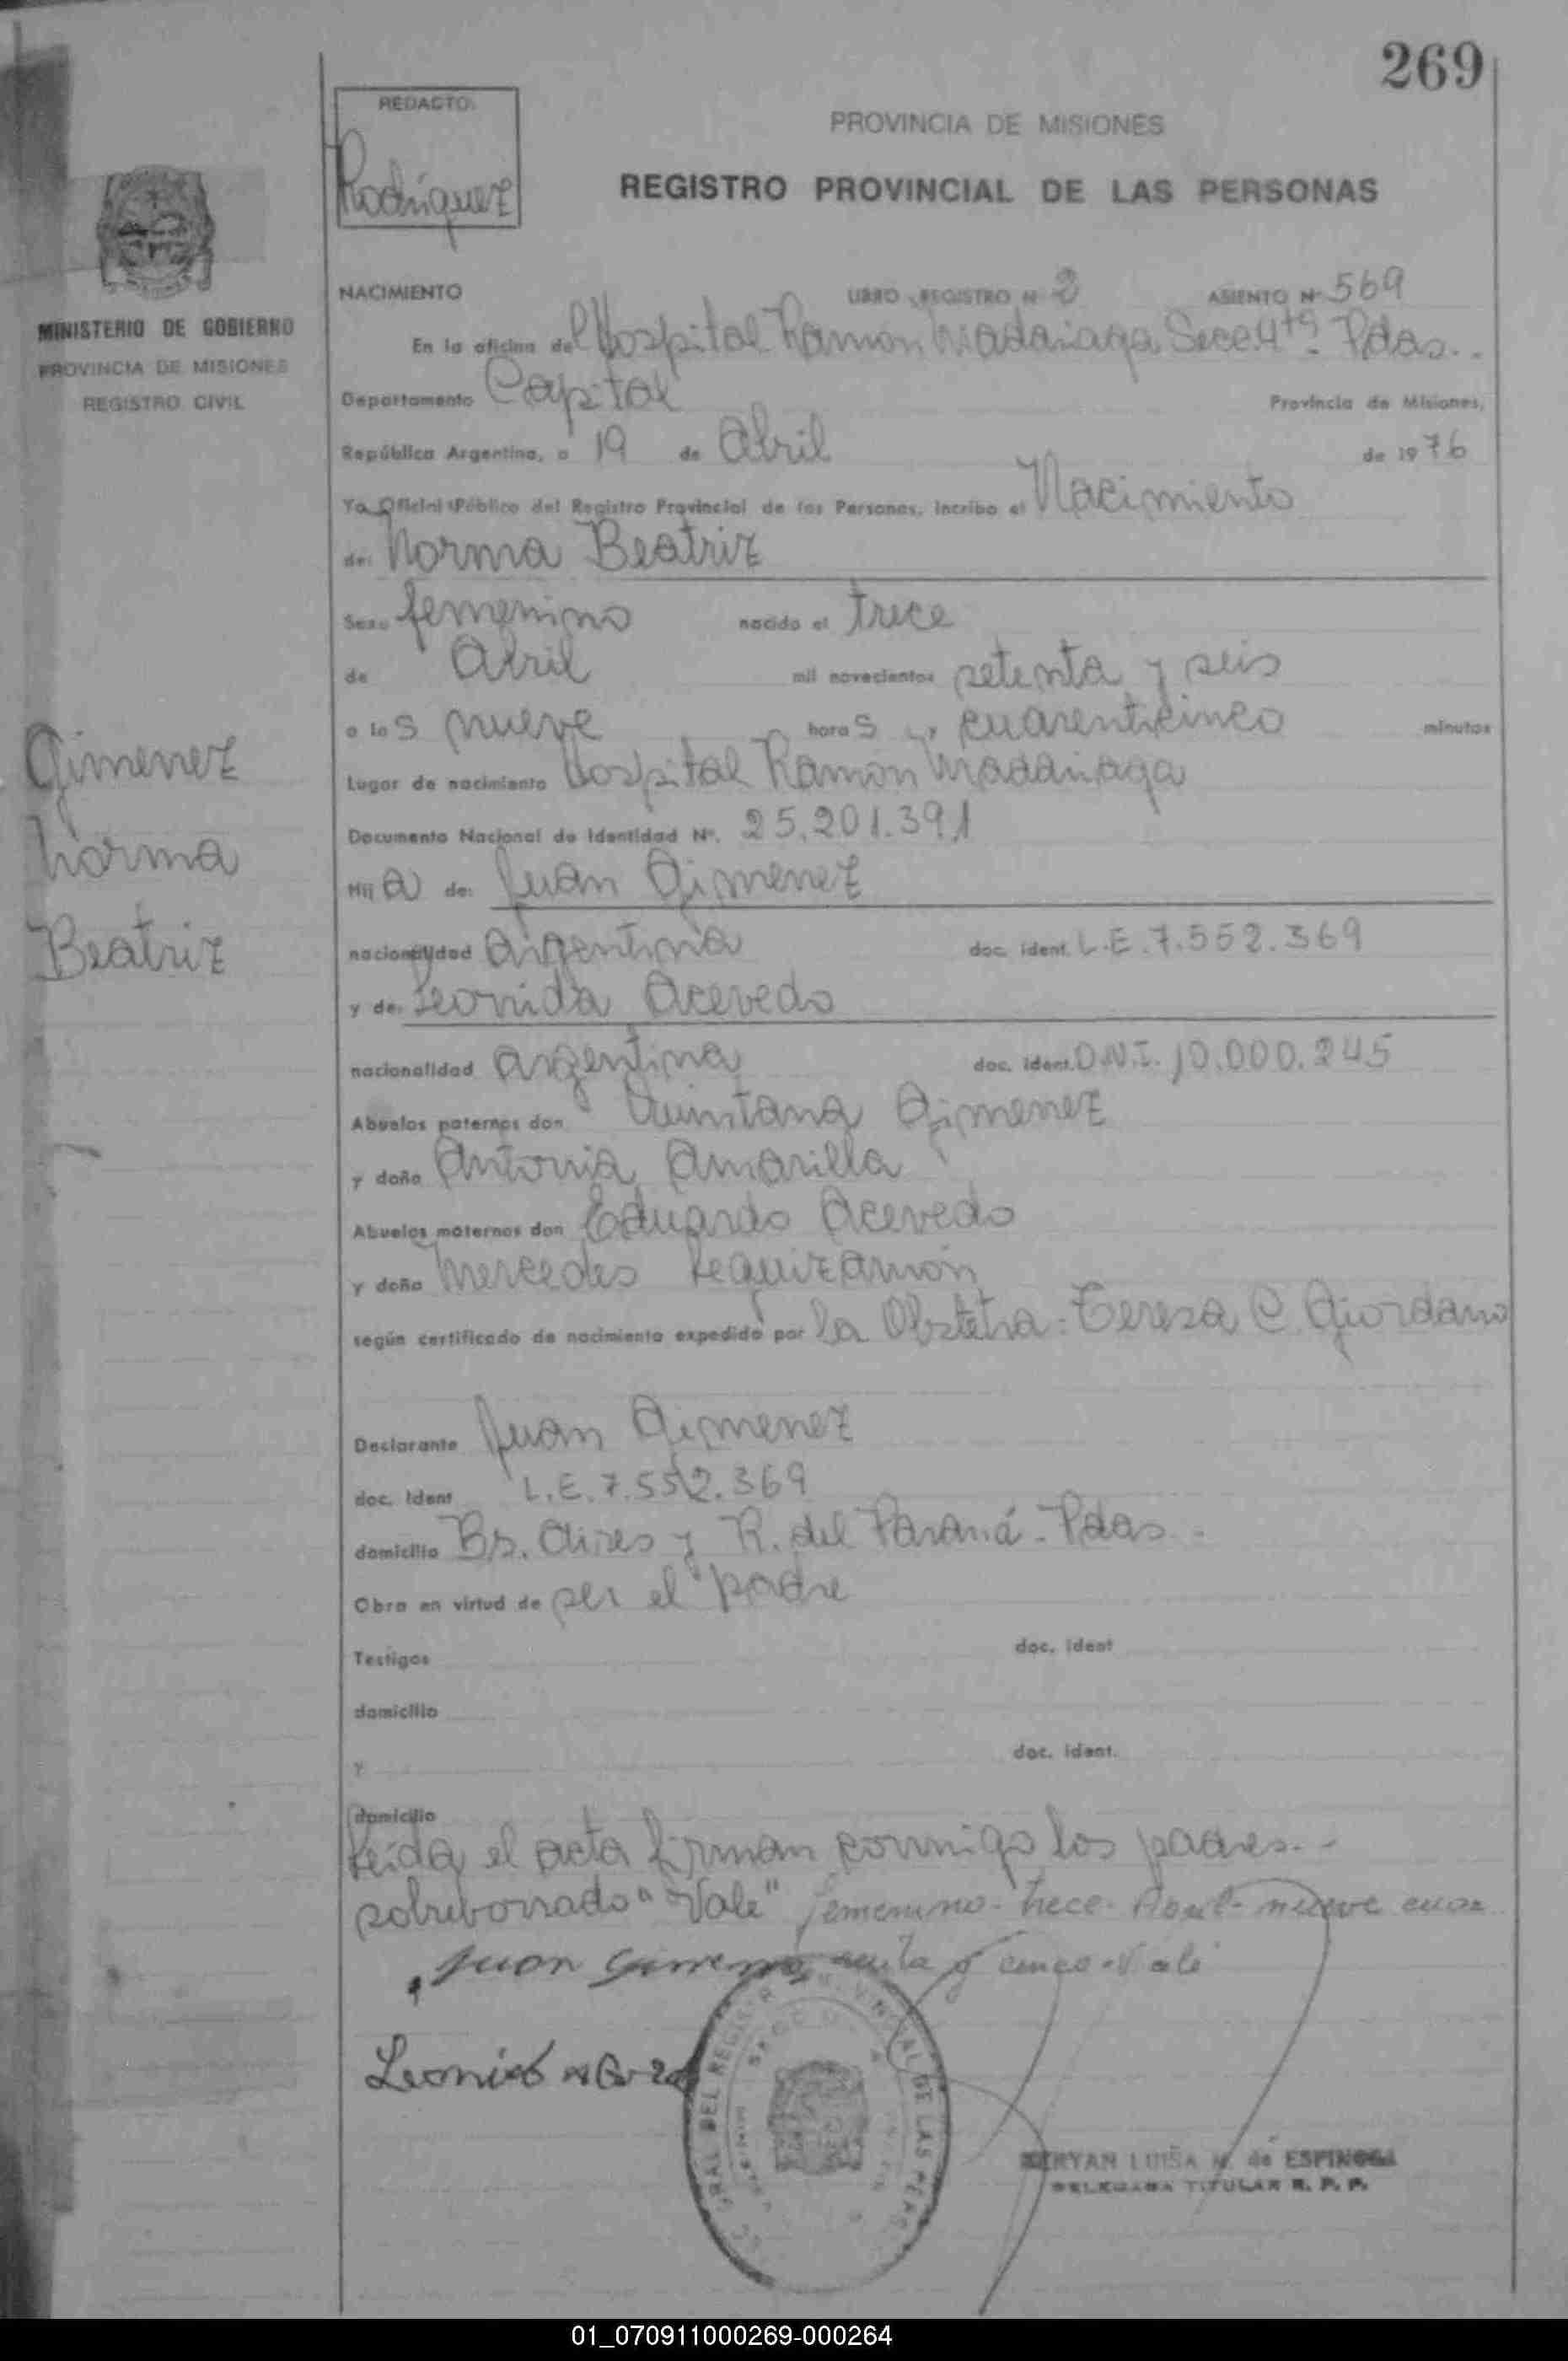 269
REDACTO:
Rodríguez
PROVINCIA DE MISIONES
REGISTRO PROVINCIAL DE LAS PERSONAS
MINISTERIO DE GOBIERNO
PROVINCIA DE MISIONES
REGISTRO CIVIL
NACIMIENTO LIBRO REGISTRO Nº 2 ASIENTO Nº 569
En la oficina del Hospital Ramón Madariaga Secc 4ta. Pdas.
Departamento Capital Provincia de Misiones,
República Argentina, a 19 de Abril de 1976
Yo Oficial Público del Registro Provincial de las Personas, incribo el Nacimiento
de: Norma Beatriz
Sexo femenino nacido el trece
de Abril mil novecientos setenta y seis
a las nueve horas y cuarenticinco minutos
Lugar de nacimiento Hospital Ramón Madariaga
Documento Nacional de Identidad Nº. 25.201.391
Hija de: Juan Gimenez
nacionalidad argentina doc. ident. L.E. 7.552.369
y de: Leonida Acevedo
nacionalidad argentina doc. ident. D.N.I. 10.000.245
Abuelos paternos don Quintana Gimenez
y doña Antonia Amarilla
Abuelos maternos don Eduardo Acevedo
y doña Mercedes Leguizamón
según certificado de nacimiento expedido por la Obstetra: Teresa C. Giordano
Gimenez
Norma
Beatriz
Declarante Juan Gimenez
doc. Ident L.E. 7.552.369
domicilio Bs. Aires y R. del Paraná - Pdas.
Obra en virtud de ser el padre
Testigos doc. ident
domicilio
y doc. ident.
domicilio
Leída el acta firman conmigo los padres.-
sobreborrado "Vale" femenino - trece - Abril - nueve cuar
enta y cinco - Vale
Juan Gimenez
Leonida
LUISA de ESPINOSA
DELEGADA TITULAR R. P. P.
01_070911000269-000264